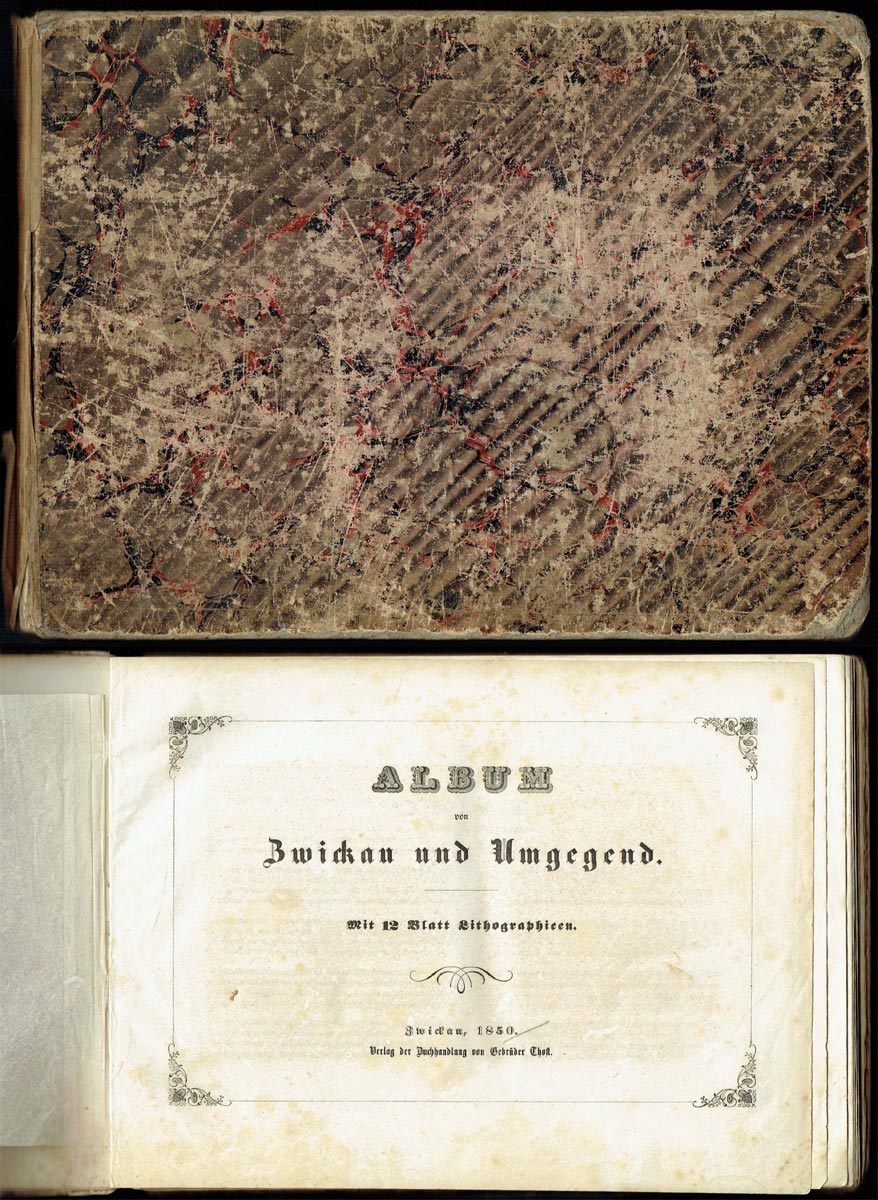 ALBUM
von
Zwickau und Umgegend.
Mit 12 Blatt Lithographieen.
Zwickau, 1850.
Verlag der Buchhandlung von Gebrüder Thost.